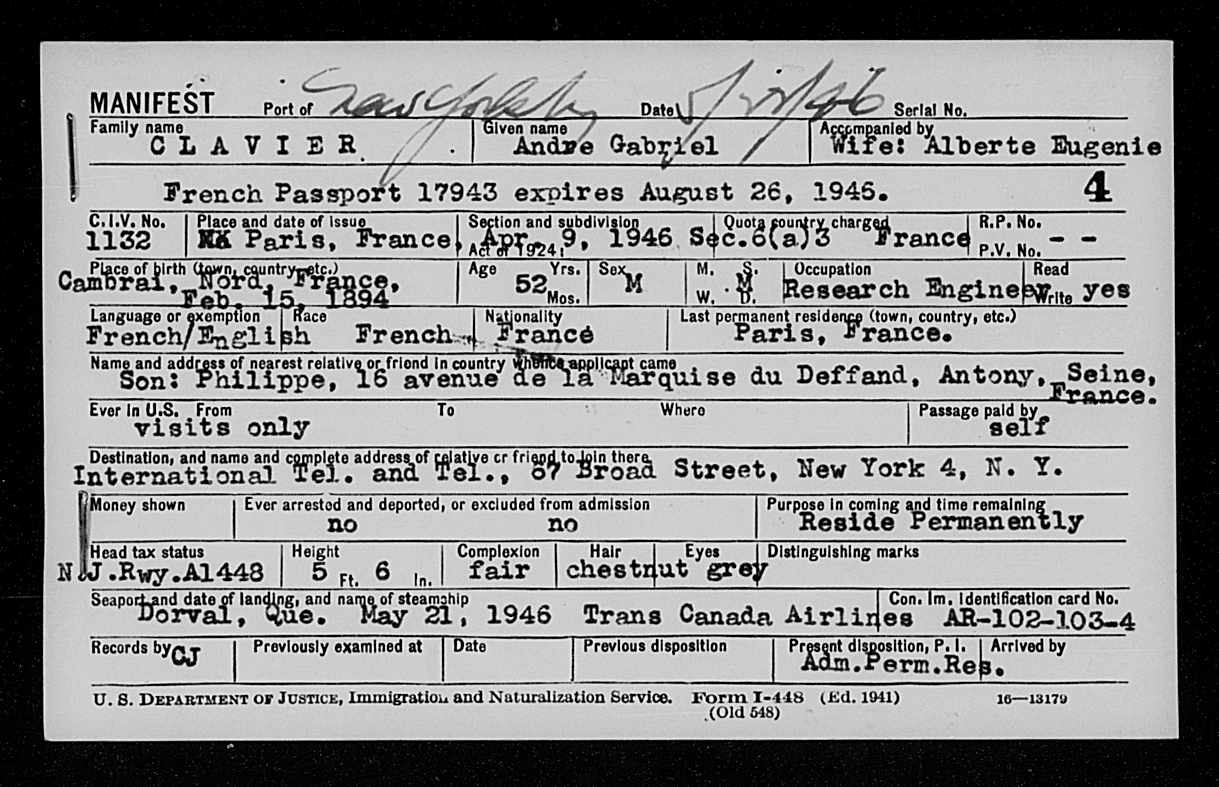 MANIFEST Port of New York Date Serial No.
Family name Given name Accompanied by
CLAVIER Andre Gabriel Wife: Alberte Eugenie
French Passport 17943 expires August 26, 1946. 4
C.I.V. No. Place and date of issue Section and subdivision Quota country charged R.P. No.
1132 Paris, France, Apr. 9, 1946 Sec.6(a)3 France - -
Act of 1924: P.V. No.
Place of birth (town, country, etc.) Age Yrs. Sex M. S. Occupation Read
Cambrai, Nord, France, 52 M M Research Engineer yes
Feb. 15, 1894 Mos. W. D. Write
Language or exemption Race Nationality Last permanent residence (town, country, etc.)
French/English French France Paris, France.
Name and address of nearest relative or friend in country whence applicant came
Son: Philippe, 16 avenue de la Marquise du Deffand, Antony, Seine,
France.
Ever in U.S. From To Where Passage paid by
visits only self
Destination, and name and complete address of relative or friend to join there
International Tel. and Tel., 67 Broad Street, New York 4, N. Y.
Money shown Ever arrested and deported, or excluded from admission Purpose in coming and time remaining
no no Reside Permanently
Head tax status Height Complexion Hair Eyes Distinguishing marks
N.J.Rwy.A1448 5 Ft. 6 In. fair chestnut grey
Seaport and date of landing, and name of steamship Con. Im. Identification card No.
Dorval, Que. May 21, 1946 Trans Canada Airlines AR-102-103-4
Records by CJ Previously examined at Date Previous disposition Present disposition, P. I. Arrived by
Adm.Perm.Res.
U. S. DEPARTMENT OF JUSTICE, Immigration and Naturalization Service. Form I-448 (Ed. 1941) 16—13179
(Old 548)